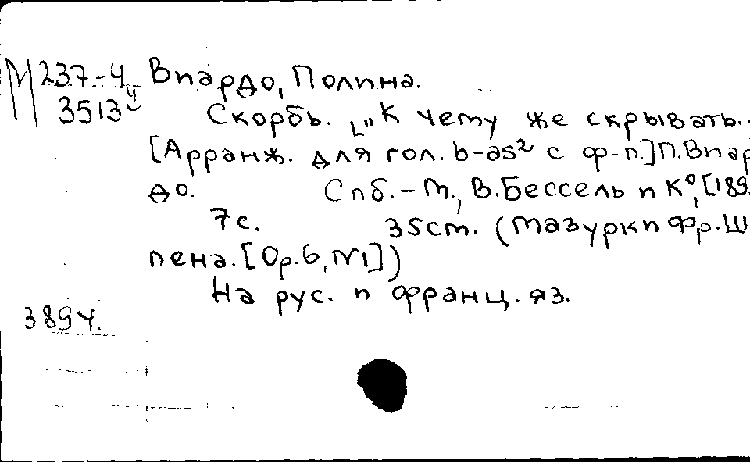 М 237-4 Виардо, Полина.
3513 ч Скорбь. ["К чему же скрывать..
[Арранж. для гол. b-as² с ф-п.] П. Виар
до. Спб.-М., В. Бессель и Кº, [189
7с. 35см. (Мазурки Фр. Ш
пена. [Op.6, №1])
На рус. и франц. яз.
389ч.